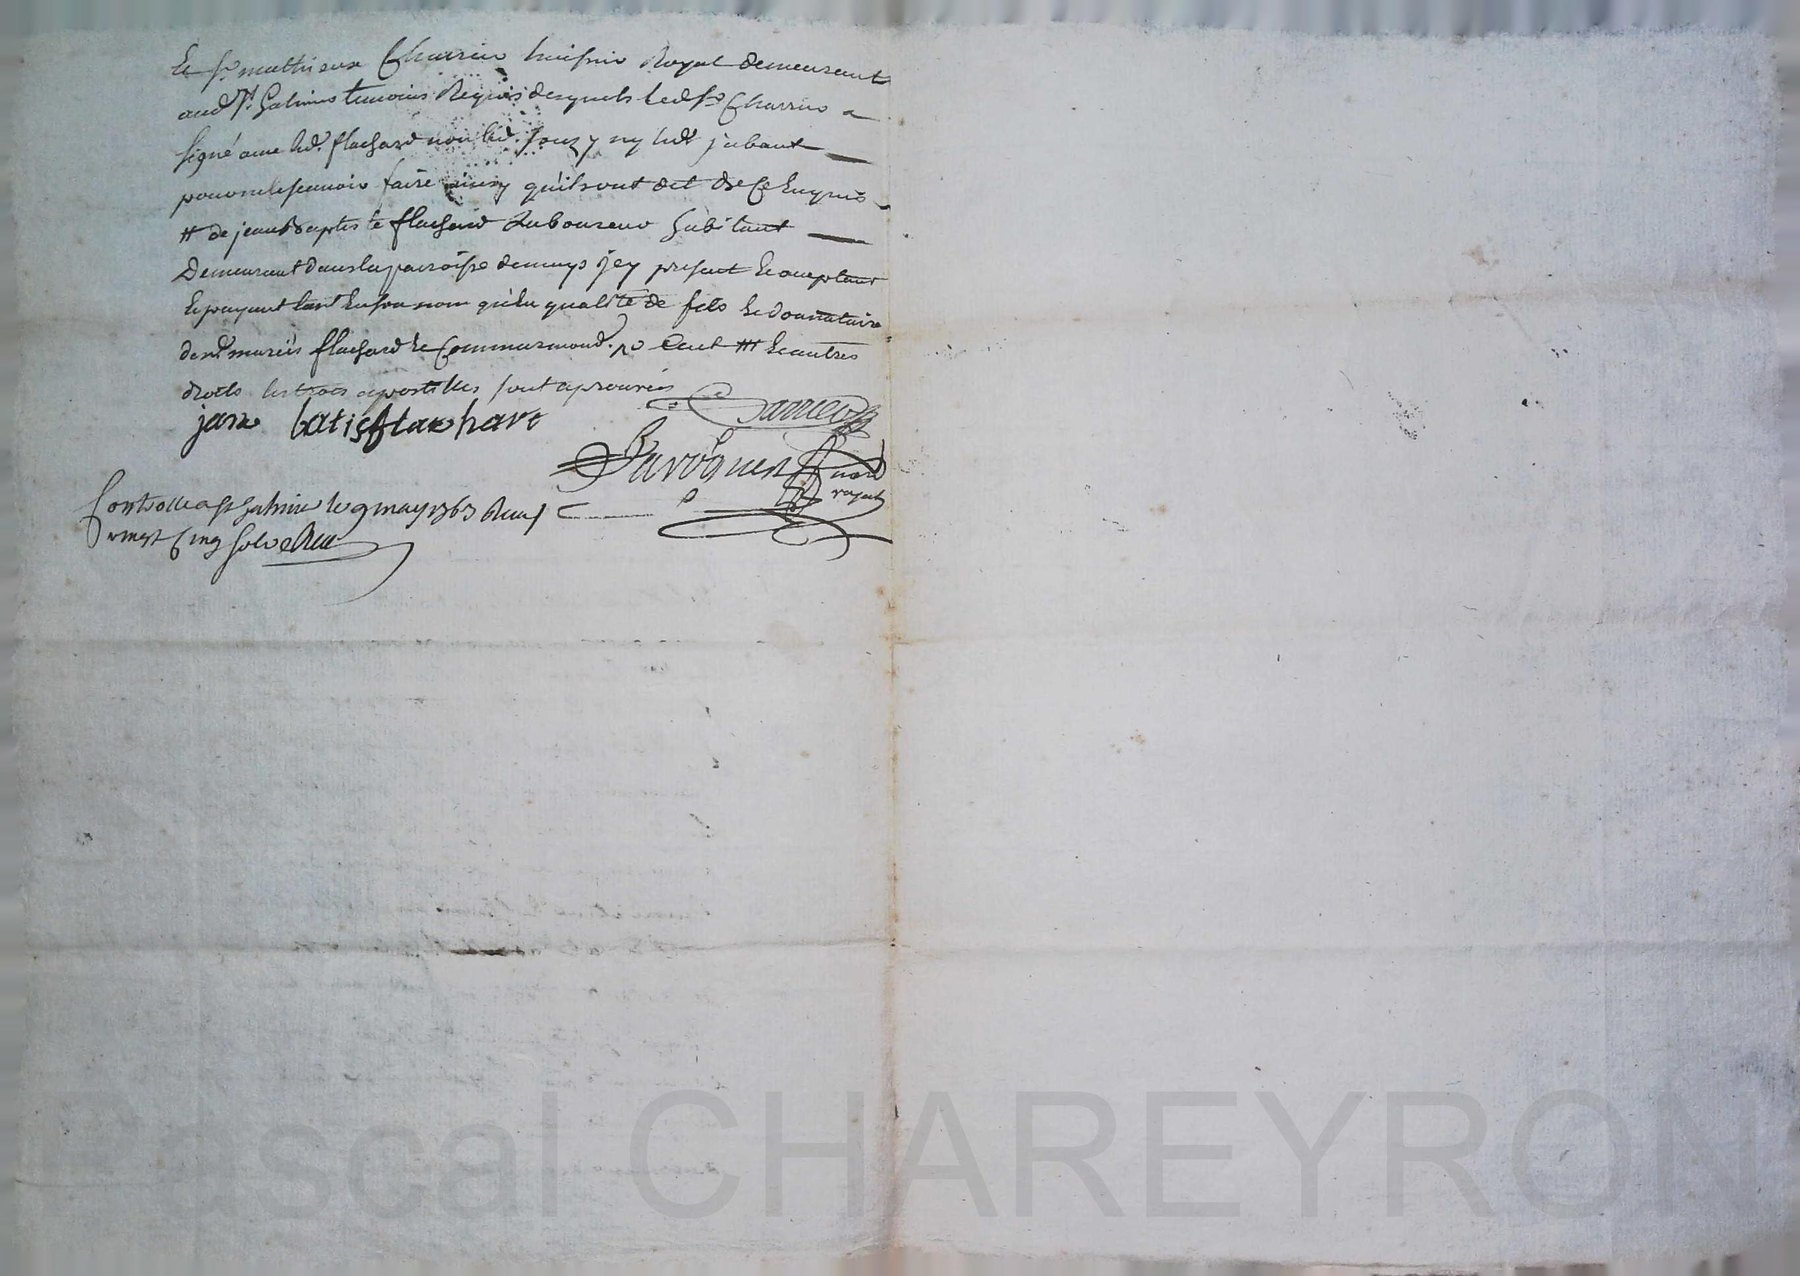 Et sr mathieux Charrin huissier Royal demeurant
aud st. Galmier temoins Requis desquels led sr Charrin a
signé avec led. flachard non led. Jouzy ny led jabant
pour ne le scavoir faire ainsy qu'ils ont dit de Ce Enquis
# de jean baptiste flachard Laboureur habitant
Demeurant dans la paroisse de present Et aceptant
Et payant tant En son nom qu'En qualité de fils Et donnataire
de flachard Et Commarmond. Et autres
droits les trois apostilles sont aprouvées
jan batis flachart
Charrieu
notre
royal
Controlle a st galmier le 9 may 1763 Reçu
vingt Cinq sols
Pascal CHAREYRON